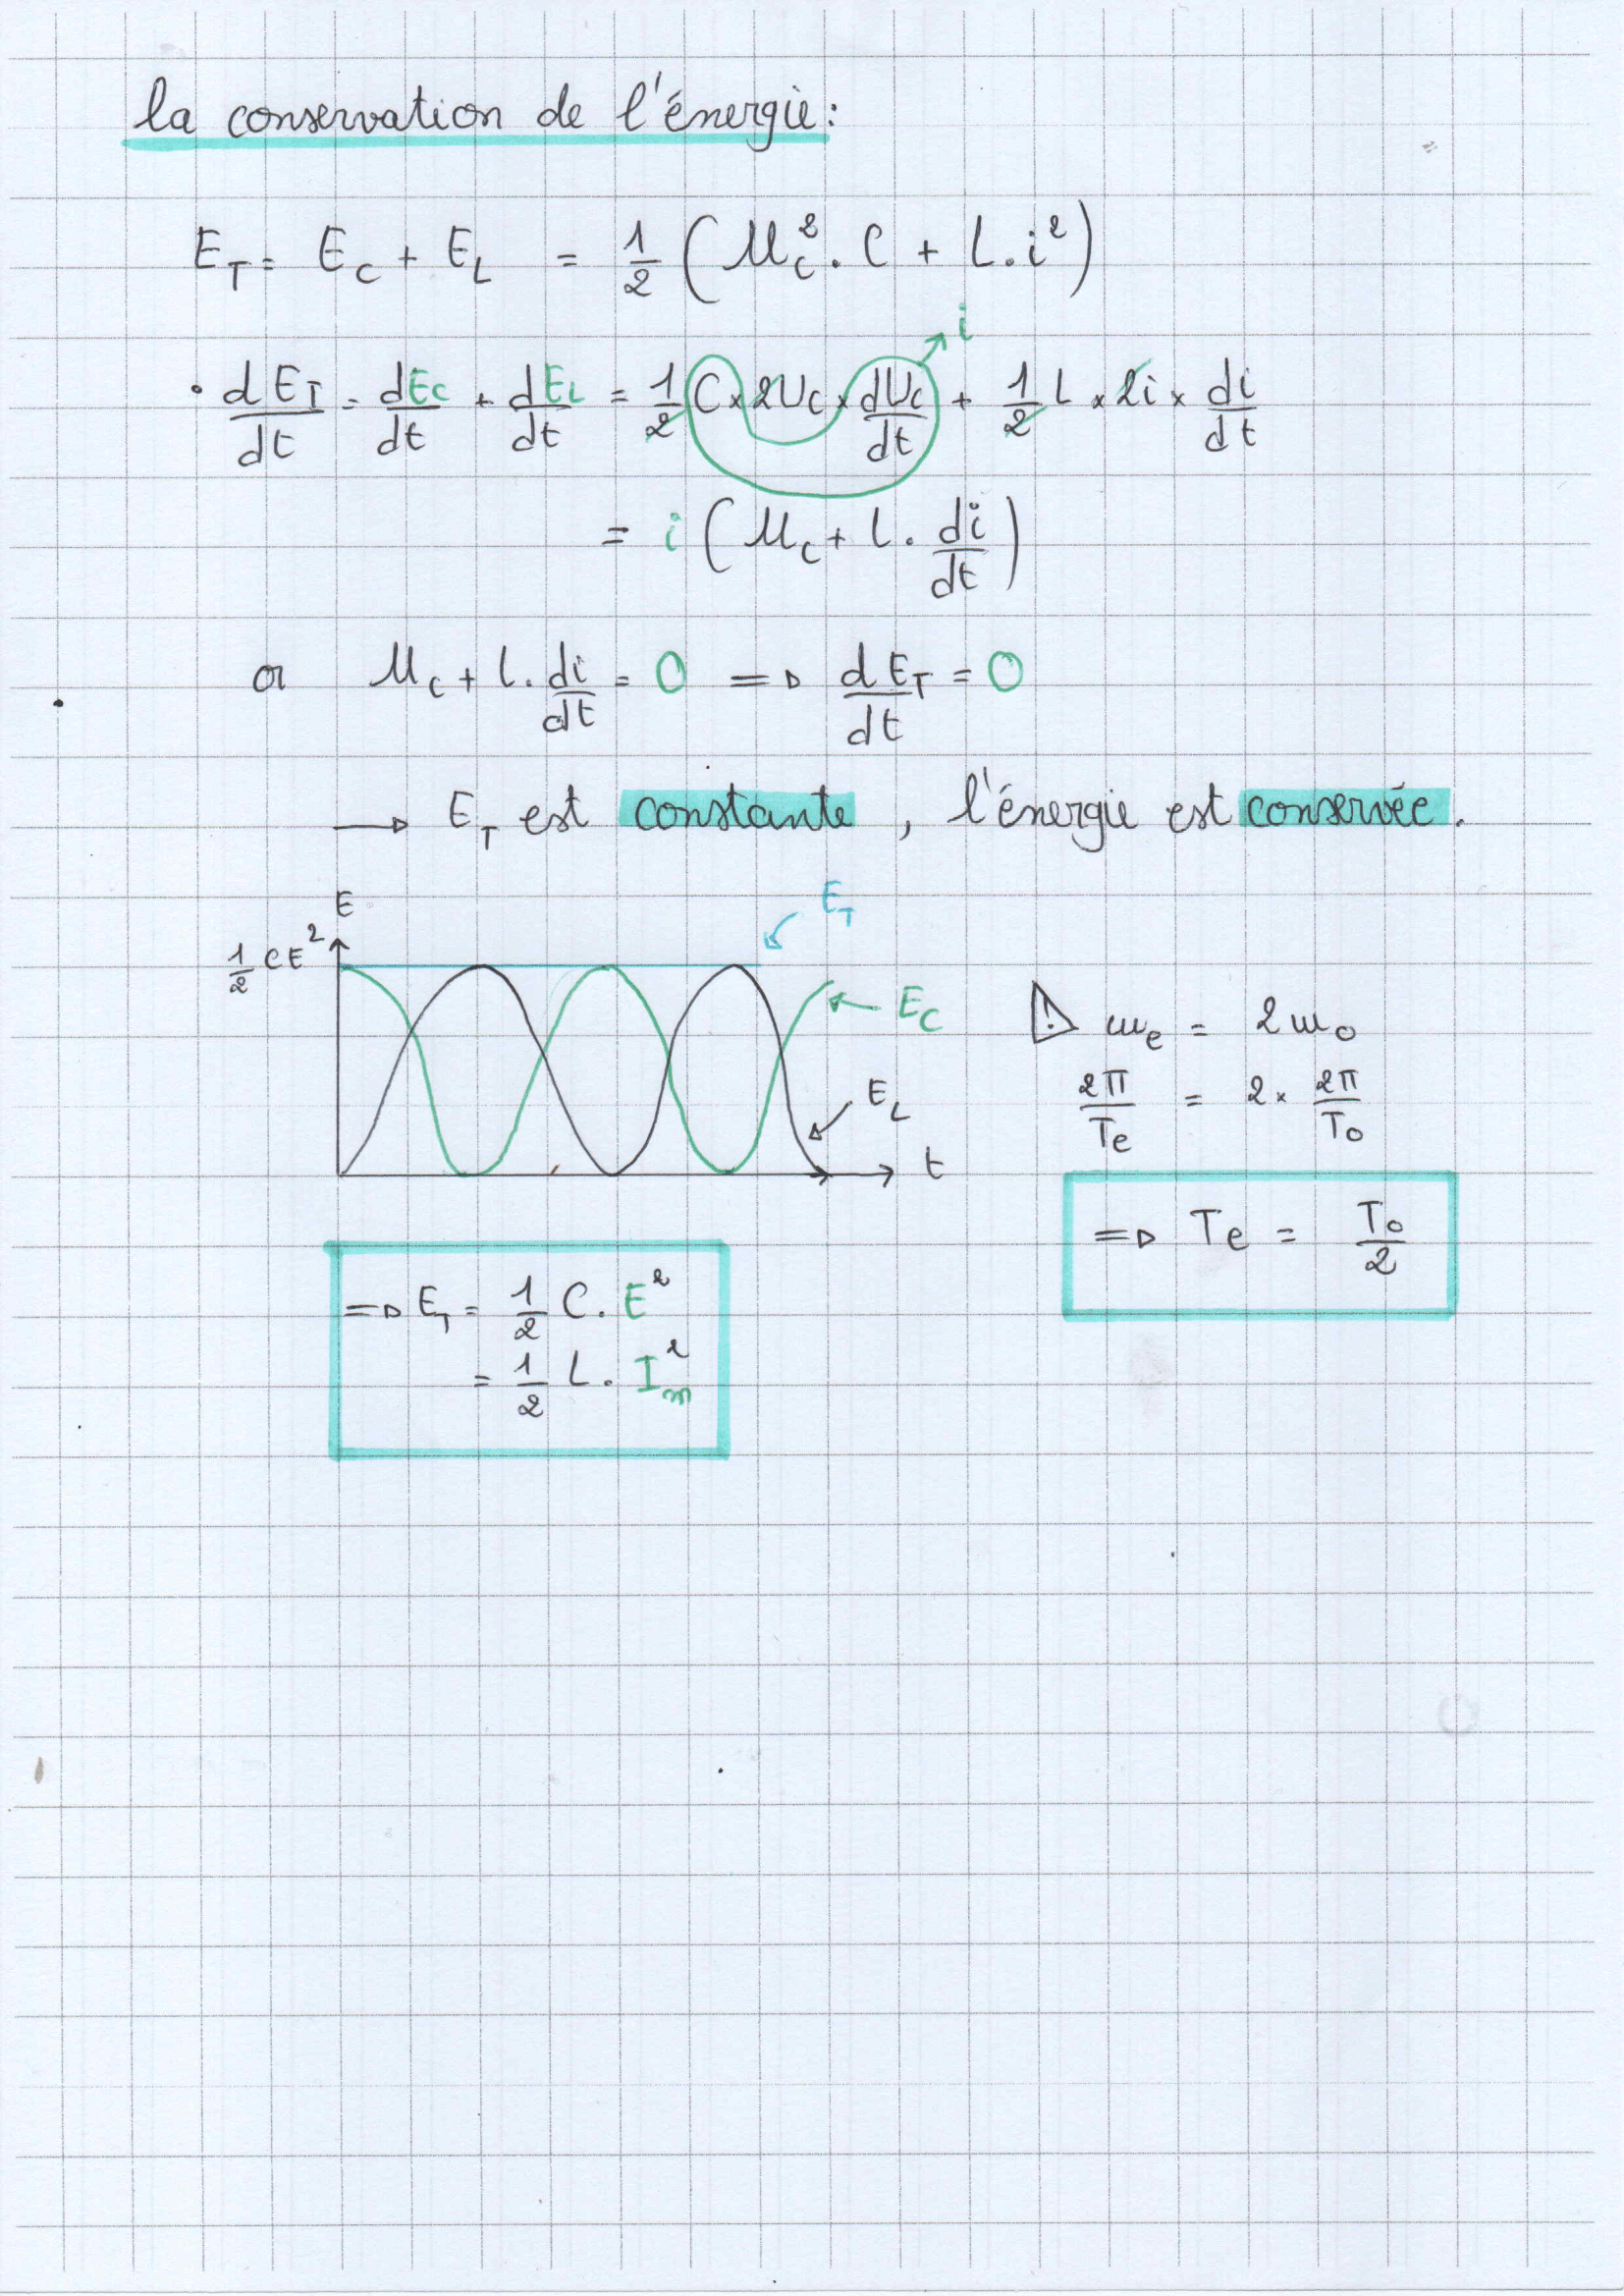 la conservation de l'énergie:
E_T = E_C + E_L = 1/2 (U_C² . C + L . i²)
i
• dE_T/dt = dE_C/dt + dE_L/dt = 1/2 C × 2U_C × dU_C/dt + 1/2 L × 2i × di/dt
= i (U_C + L . di/dt)
or U_C + L . di/dt = 0 => dE_T/dt = 0
→ E_T est constante, l'énergie est conservée.
E
E_T
1/2 CE²
E_C
E_L
t
! ω_e = 2ω_0
2π/T_e = 2 × 2π/T_0
=> T_e = T_0/2
=> E_T = 1/2 C . E²
= 1/2 L . I_m²